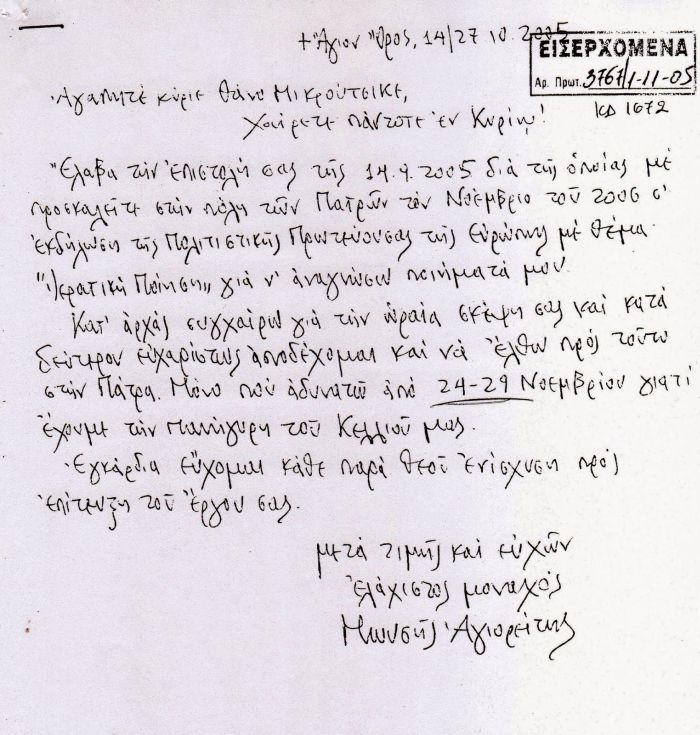 + Ἅγιον Ὄρος, 14/27 10.2005
ΕΙΣΕΡΧΟΜΕΝΑ
Αρ. Πρωτ. 3767/1-11-05
ΚΔ 1672
Ἀγαπητέ κύριε Θάνο Μικρούτσικε,
Χαίρετε πάντοτε ἐν Κυρίῳ!
Ἔλαβα τήν ἐπιστολή σας τῆς 14.9.2005 διά τῆς ὁποίας μέ
προσκαλεῖτε στήν πόλη τῶν Πατρῶν τόν Νοέμβριο τοῦ 2006 σ'
ἐκδήλωση τῆς Πολιτιστικῆς Πρωτεύουσας τῆς Εὐρώπης μέ θέμα
"Ἱερατική Ποίηση" γιά ν' ἀναγνώσω ποιήματά μου.
Κατ' ἀρχάς συγχαίρω γιά τήν ὡραία σκέψη σας καί κατά
δεύτερον εὐχαρίστως ἀποδέχομαι καί νά ἔλθω πρός τοῦτο
στήν Πάτρα. Μόνο πού ἀδυνατῶ ἀπό 24-29 Νοεμβρίου γιατί
ἔχουμε τήν πανήγυρη τοῦ Κελλιοῦ μας.
Ἐγκάρδια εὔχομαι κάθε παρά Θεοῦ ἐνίσχυση πρός
ἐπίτευξη τοῦ ἔργου σας.
μετά τιμῆς καί εὐχῶν
ἐλάχιστος μοναχός
Μωυσῆς Ἁγιορείτης